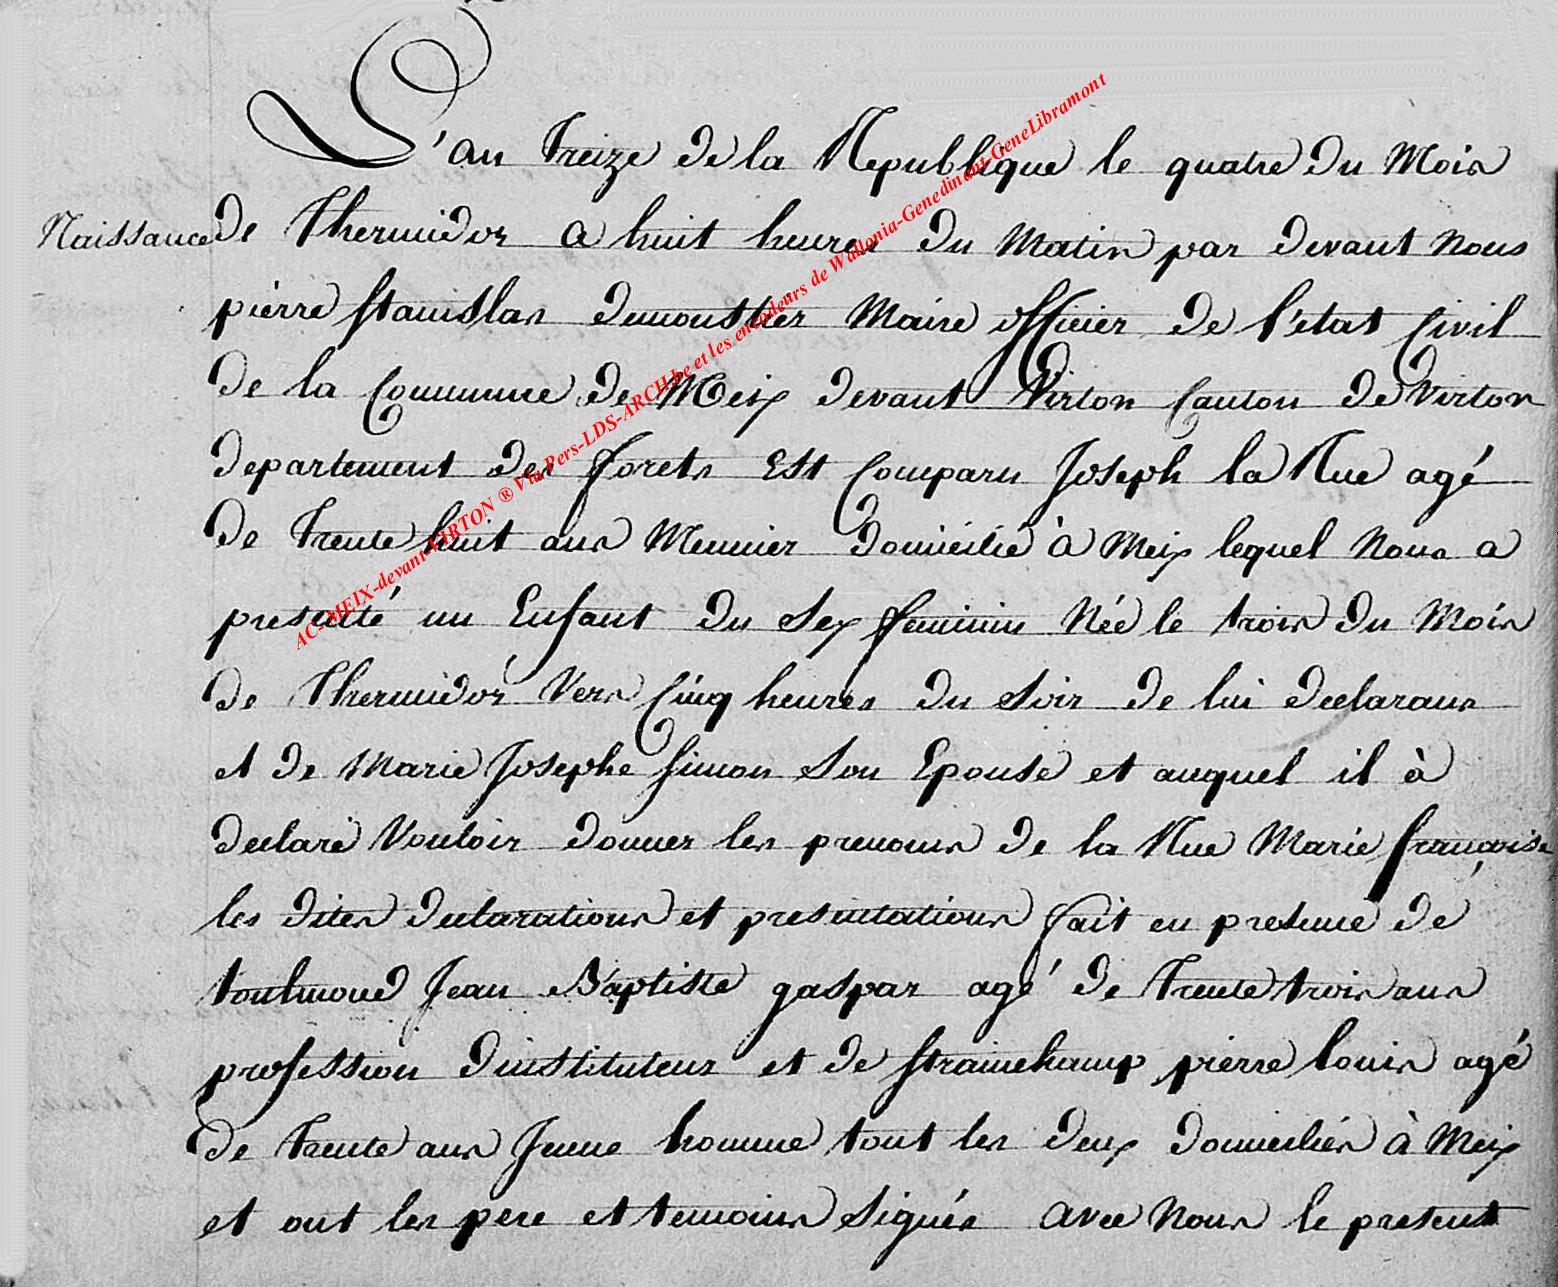 L'an treize de la Republique le quatre du Mois
Naissance
de Thermidor a huit heures du Matin par devant Nous
pierre stanislas demousthier Maire officier de l'état Civil
de la Commune de Meix devant Virton Canton de Virton
departement des forets Est Comparu Joseph la Rue agé
de trente huit ans Meunier domicilié à Meix lequel Nous a
presenté un Enfant du Sex feminin Née le trois du Mois
de Thermidor Vers Cinq heures du Soir de lui declarans
et de Marie Josephe Simon Son Epouse et auquel il à
declaré Vouloir donner les prenoms de la Rue Marie françoise
les dites declarations et presentations fait en presence de
toulmond Jean Baptiste gaspar agé de trente trois ans
profession dinstituteur et de strainchamp pierre louis agé
de trente ans Jeune homme tout les deux domiciliés à Meix
et ont les pere et temoins Signés avec Nous le present
AC-MEIX-devant-VIRTON ® Via Pers-LDS-ARCH.be et les encodeurs de Wallonia-Genedinant-GeneLibramont